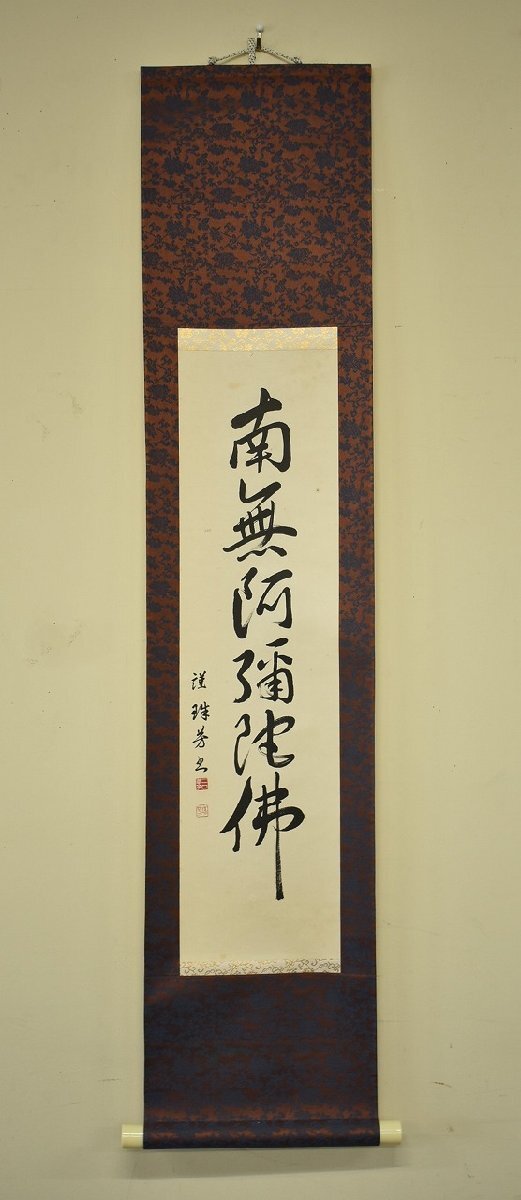 南無阿彌陀佛
謹珠芳書